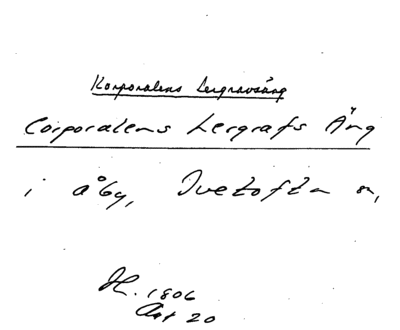 Korporalens Lergravsäng
Corporalens Lergrafs Äng
i åby, Ivetofta sn,
H. 1806
Akt 20